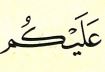 عَلَيْكُمُ